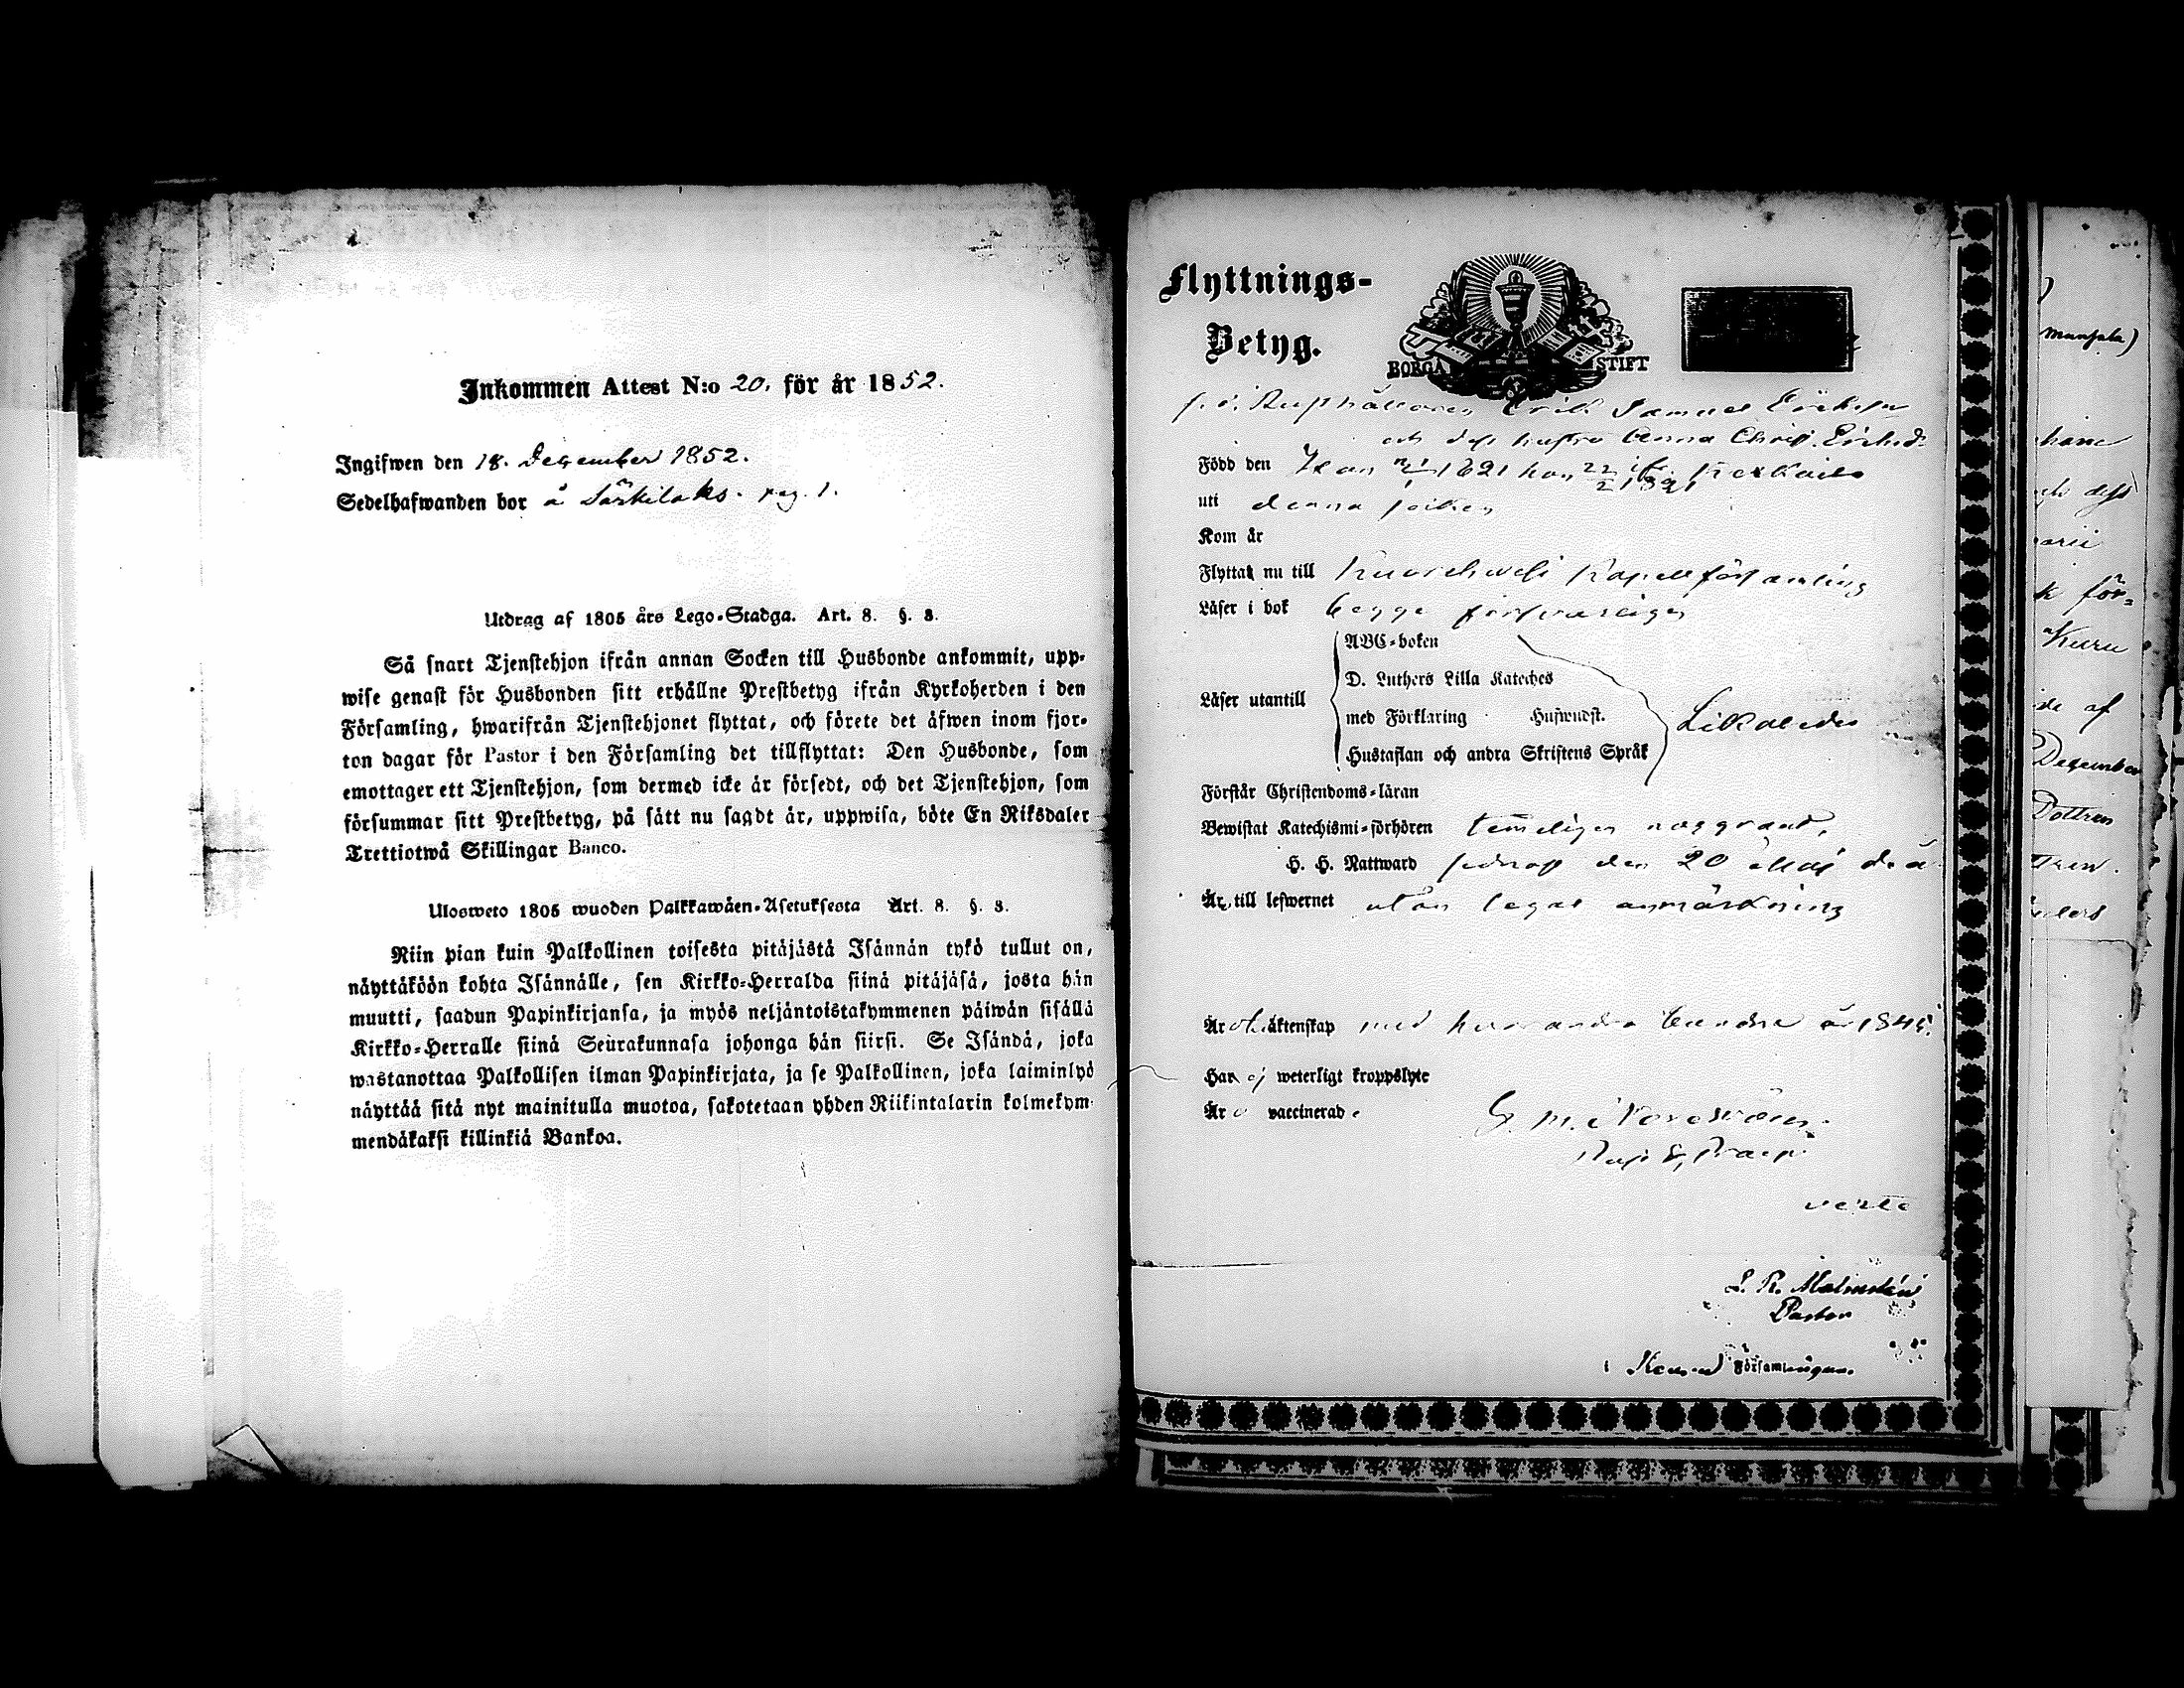 Inkommen Attest N:o 20. för år 1852.
Ingifwen den 18. December 1852.
Sedelhafwanden bor å Särkilaks. pag. 1.
Utdrag af 1805 års Lego-Stadga. Art. 8. §. 8.
Så snart Tjenstehjon ifrån annan Socken till Husbonde ankommit, upp-
wise genast för Husbonden sitt erhållne Prestbetyg ifrån Kyrkoherden i den
Församling, hwarifrån Tjenstehjonet flyttat, och förete det äfwen inom fjor-
ton dagar för Pastor i den Församling det tillflyttat: Den Husbonde, som
emottager ett Tjenstehjon, som dermed icke är försedt, och det Tjenstehjon, som
försummar sitt Prestbetyg, på sätt nu sagdt är, uppwisa, böte En Riksdaler
Trettiotwå Skillingar Banco.
Ulosweto 1805 wuoden Palkkawäen-Asetuksesta Art. 8. §. 8.
Niin pian kuin Palkollinen toisesta pitäjästä Isännän tykö tullut on,
näyttäköön kohta Isännälle, sen Kirkko-Herralda siinä pitäjäsä, josta hän
muutti, saadun Papinkirjansa, ja myös neljäntoistakymmenen päiwän sisällä
Kirkko-Herralle siinä Seurakunnasa johonga hän siirsi. Se Isändä, joka
wastanottaa Palkollisen ilman Papinkirjata, ja se Palkollinen, joka laiminlyö
näyttää sitä nyt mainitulla muotoa, sakotetaan yhden Riikintalarin kolmekym-
mendäkaksi killinkiä Bankoa.
Flyttnings-
Betyg.
BORGÅ STIFT
Erik Samuel Eriksson
och dess hustru Anna Christ. Eriksd.
Född den Han 1821 hon
uti denna socken
Kom år
Flyttat nu till Kuorehwesi Kapellförsamling
Läser i bok begge försvarligen
Läser utantill
ABC-boken
D. Luthers Lilla Kateches
med Förklaring Huswudst.
Hustaflan och andra Skriftens Språk
Likaledes
Förstår Christendoms-läran
Bewistat Katechismi-förhören temeligen noggrant,
H. H. Nattward sednast den 20 Maj d. å
Är till lefwernet utan legal anmärkning
Är i äktenskap med hwarandra år
Har ej weterligt kroppslyte
Är vaccinerade
verte
L. R. Malmstén
Pastor
i Församlingen.
Kuru
December